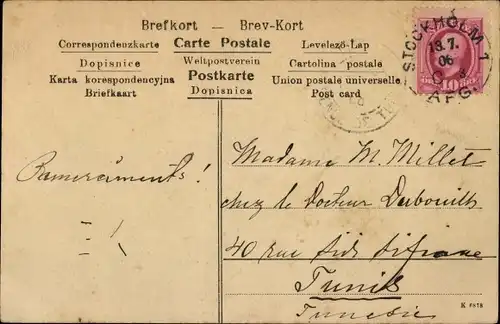 Brefkort — Brev-Kort
Correspondenzkarte Carte Postale Levelező-Lap
Dopisnice Weltpostverein Cartolina postale
Karta korespondencyjna Postkarte Union postale universelle
Briefkaart Dopisnica Post card
STOCKHOLM 1
13.7.
06
AFG.
10 ÖRE 10
Madame M. Millet
chez le Docteur
40 rue Sidi
Tunis
Tunisie
K 6818